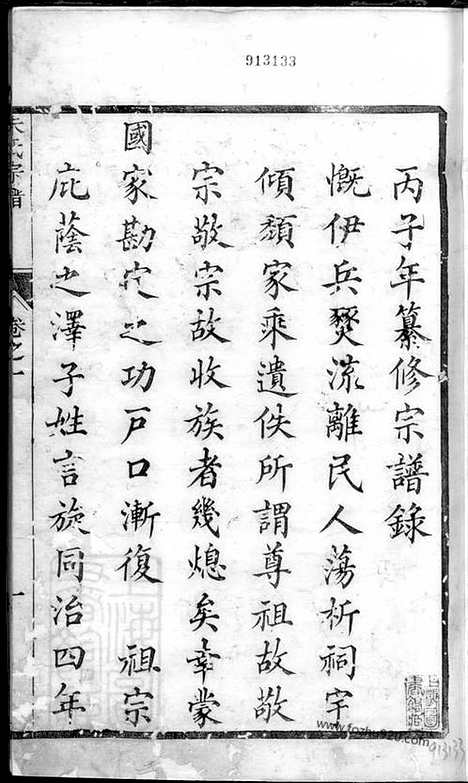 913133
丙子年纂修宗譜錄
慨伊兵燹流離民人蕩析祠宇
傾頹家乘遺佚所謂尊祖故敬
宗敬宗故收族者幾熄矣幸蒙
國家勘定之功戶口漸復 祖宗
庇蔭之澤子姓言旋同治四年
氏宗譜
卷之一
一
www.fozhu920.com
913133